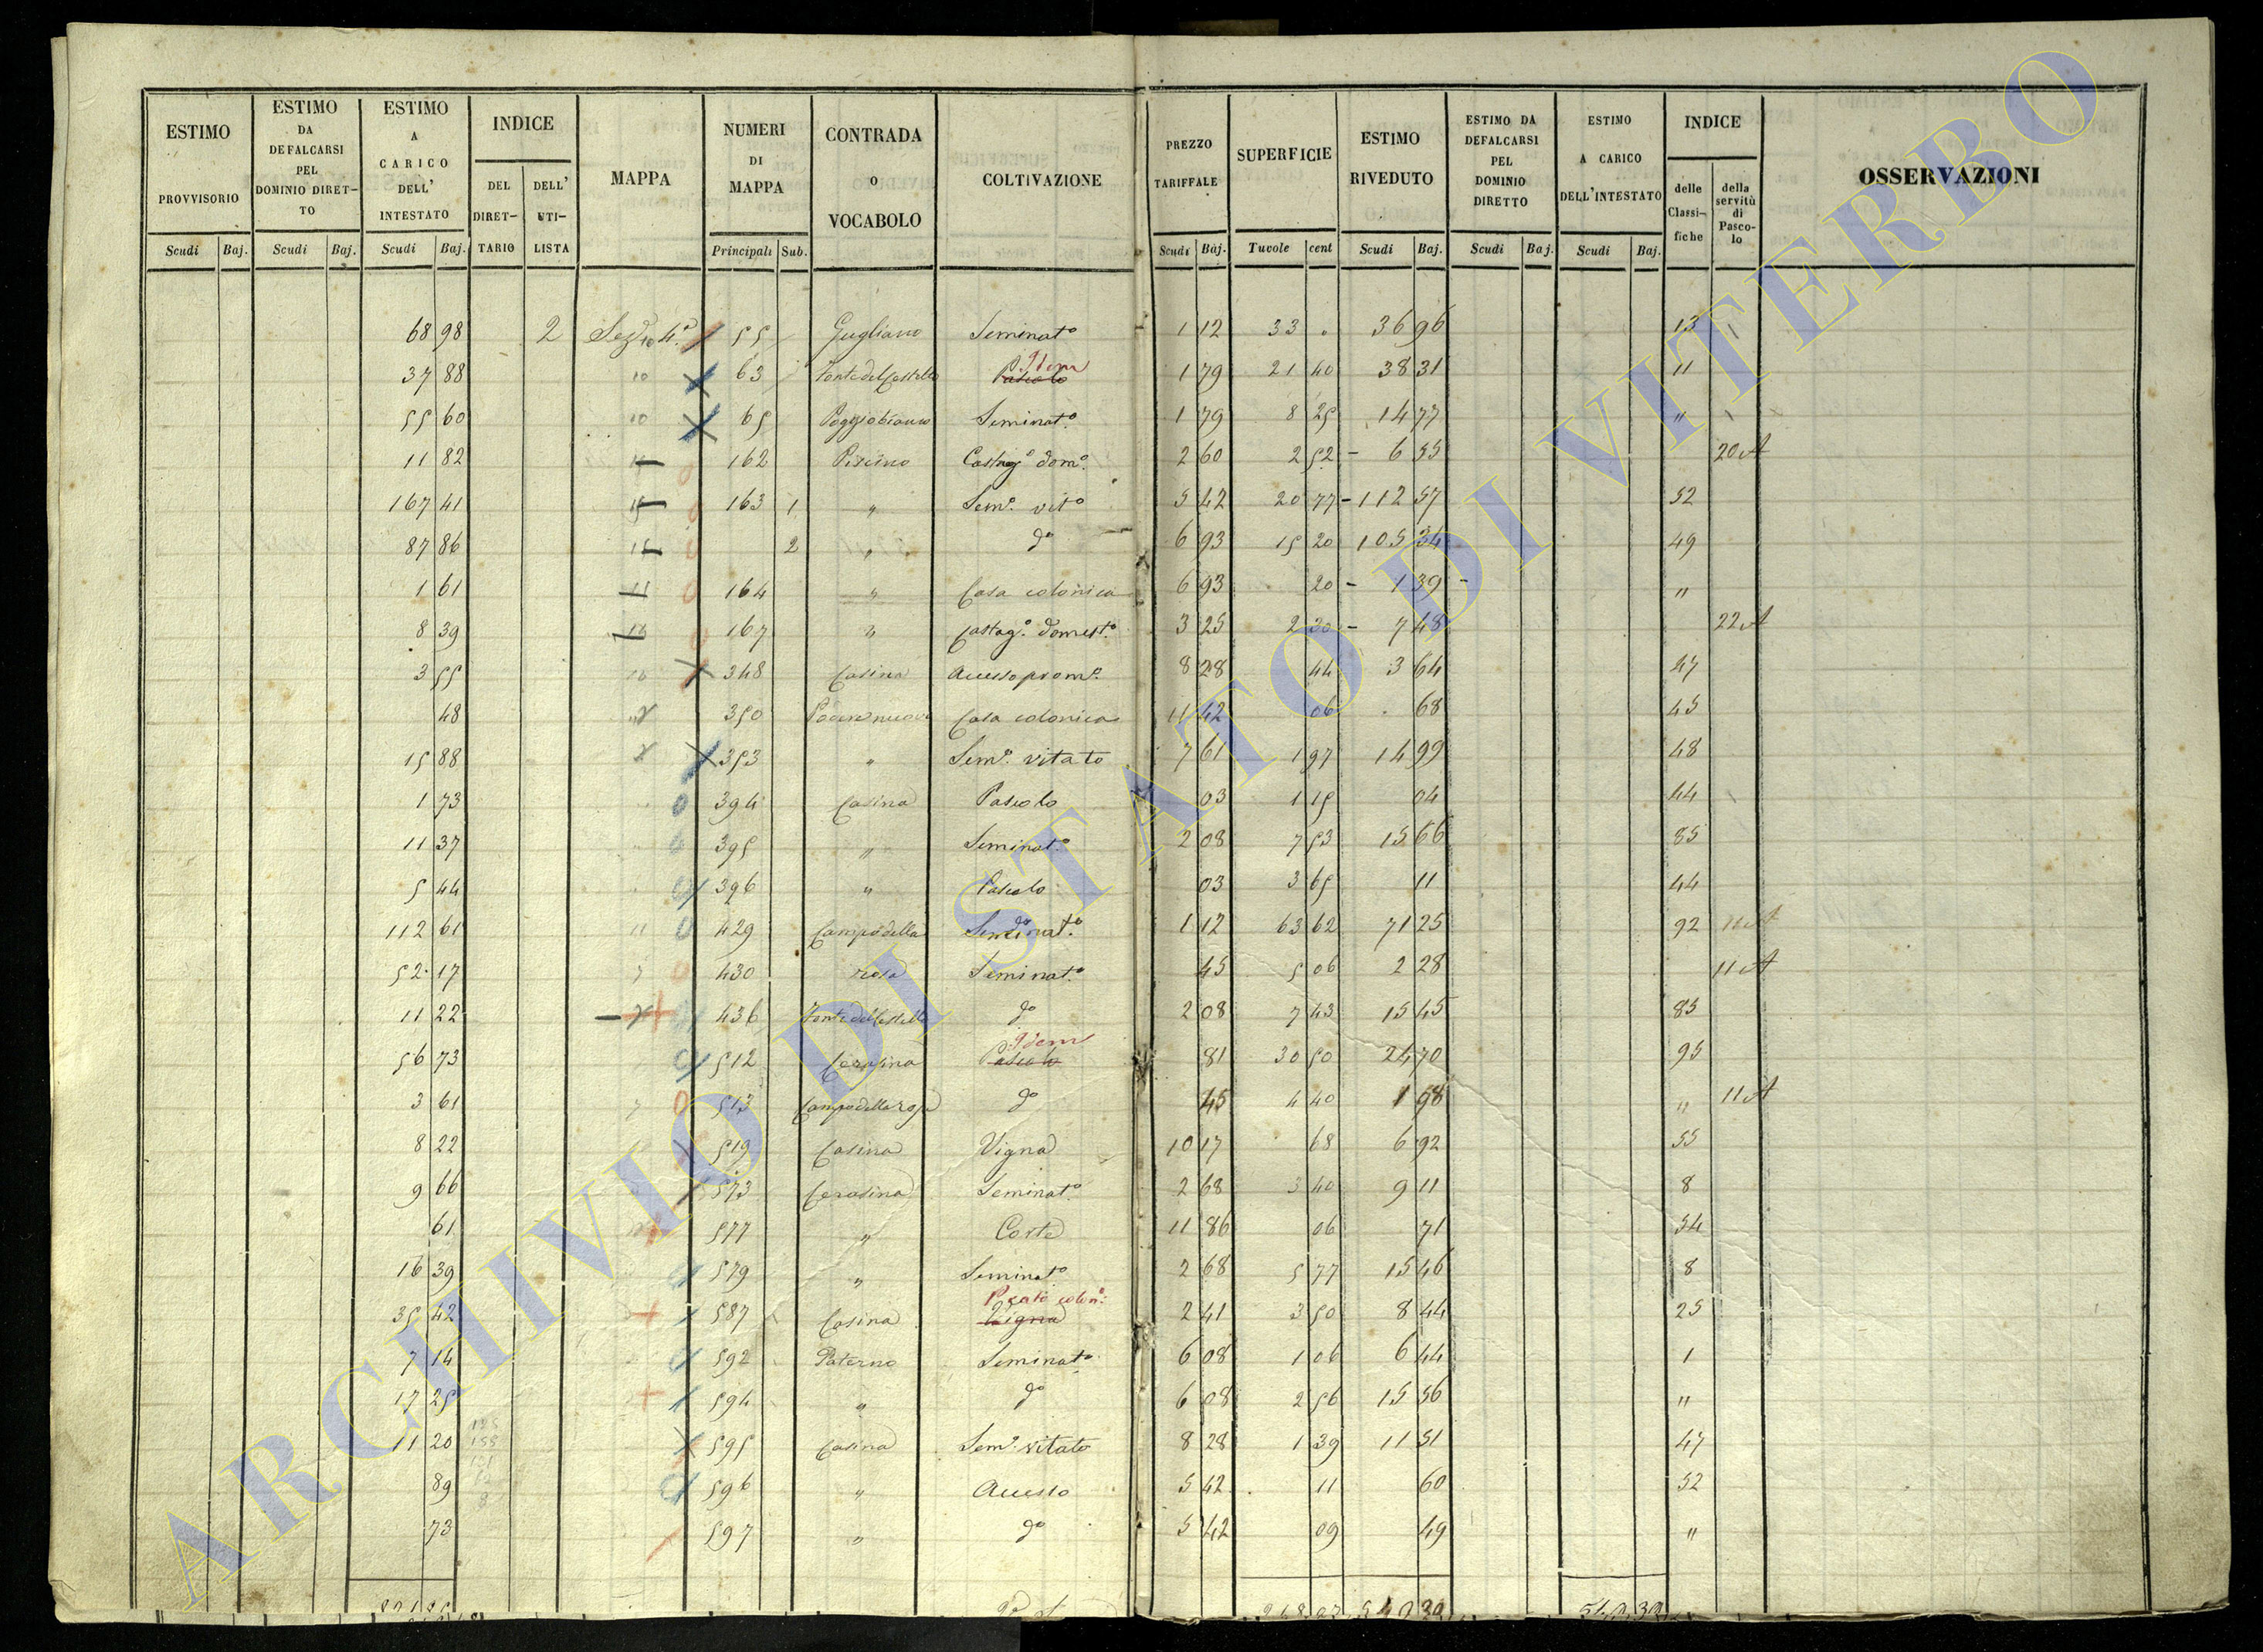 ESTIMO PROVVISORIO Scudi Baj.
ESTIMO DA DEFALCARSI PEL DOMINIO DIRET-TO Scudi Baj.
ESTIMO A CARICO DELL' INTESTATO Scudi Baj.
INDICE DEL DIRET-TARIO DELL' UTI-LISTA
MAPPA
NUMERI DI MAPPA Principali Sub.
CONTRADA O VOCABOLO
COLTIVAZIONE
PREZZO TARIFFALE Scudi Baj.
SUPERFICIE Tavole cent
ESTIMO RIVEDUTO Scudi Baj.
ESTIMO DA DEFALCARSI PEL DOMINIO DIRETTO Scudi Baj.
ESTIMO A CARICO DELL'INTESTATO Scudi Baj.
INDICE delle Classi-fiche della servitù di Pasco-lo
OSSERVAZIONI
68 98 2 Sezne 4a 55 Gugliano Seminato 1 12 33 " 36 96 13
37 88 63 Fonte del Castello Pascolo Idem 1 79 21 40 38 31 11
55 60 65 Poggiobianco Seminato 1 79 8 25 14 77 "
11 82 162 Piscino Castago domo 2 60 2 52 6 55 20 A
167 41 163 1 " Semo vito 5 42 20 77 112 57 52
87 86 2 " do 6 93 15 20 105 34 49
1 61 164 " Casa colonica 6 93 20 1 39 "
8 39 167 " Castago domesto 3 25 2 30 7 48 22 A
3 55 348 Casina Accesso promo 8 28 44 3 64 47
48 350 Casa colonica 11 42 06 68 45
15 88 353 " Semo vitato 7 61 1 97 14 99 48
1 73 394 Casina Pascolo 03 1 15 04 44
11 37 395 " Seminato 2 08 7 53 15 66 85
5 44 396 " Pascolo 03 3 65 11 44
112 61 429 Campo della Seminato 1 12 63 62 71 25 92 11 A
52 17 430 rosa Seminato 45 5 06 2 28 11 A
11 22 436 Fonte del Castello do 2 08 7 43 15 45 85
56 73 512 Cerasina Pascolo Idem 81 30 50 24 70 95
3 61 513 Campo della rosa do 45 4 40 1 98 " 11 A
8 22 519 Casina Vigna 10 17 68 6 92 55
9 66 573 Cerasina Seminato 2 68 3 40 9 11 8
61 577 " Corte 11 86 06 71 54
16 39 579 " Seminato 2 68 5 77 15 46 8
35 42 587 Casina Vigna Prato colono 2 41 3 50 8 44 25
7 14 592 Paterno Seminato 6 08 1 06 6 44 1
17 25 594 " do 6 08 2 56 15 56 "
11 20 595 Casina Semo vitato 8 28 1 39 11 51 47
89 596 " Accesso 5 42 11 60 52
73 597 " do 5 42 09 49 "
549 39 549 39
ARCHIVIO DI STATO DI VITERBO